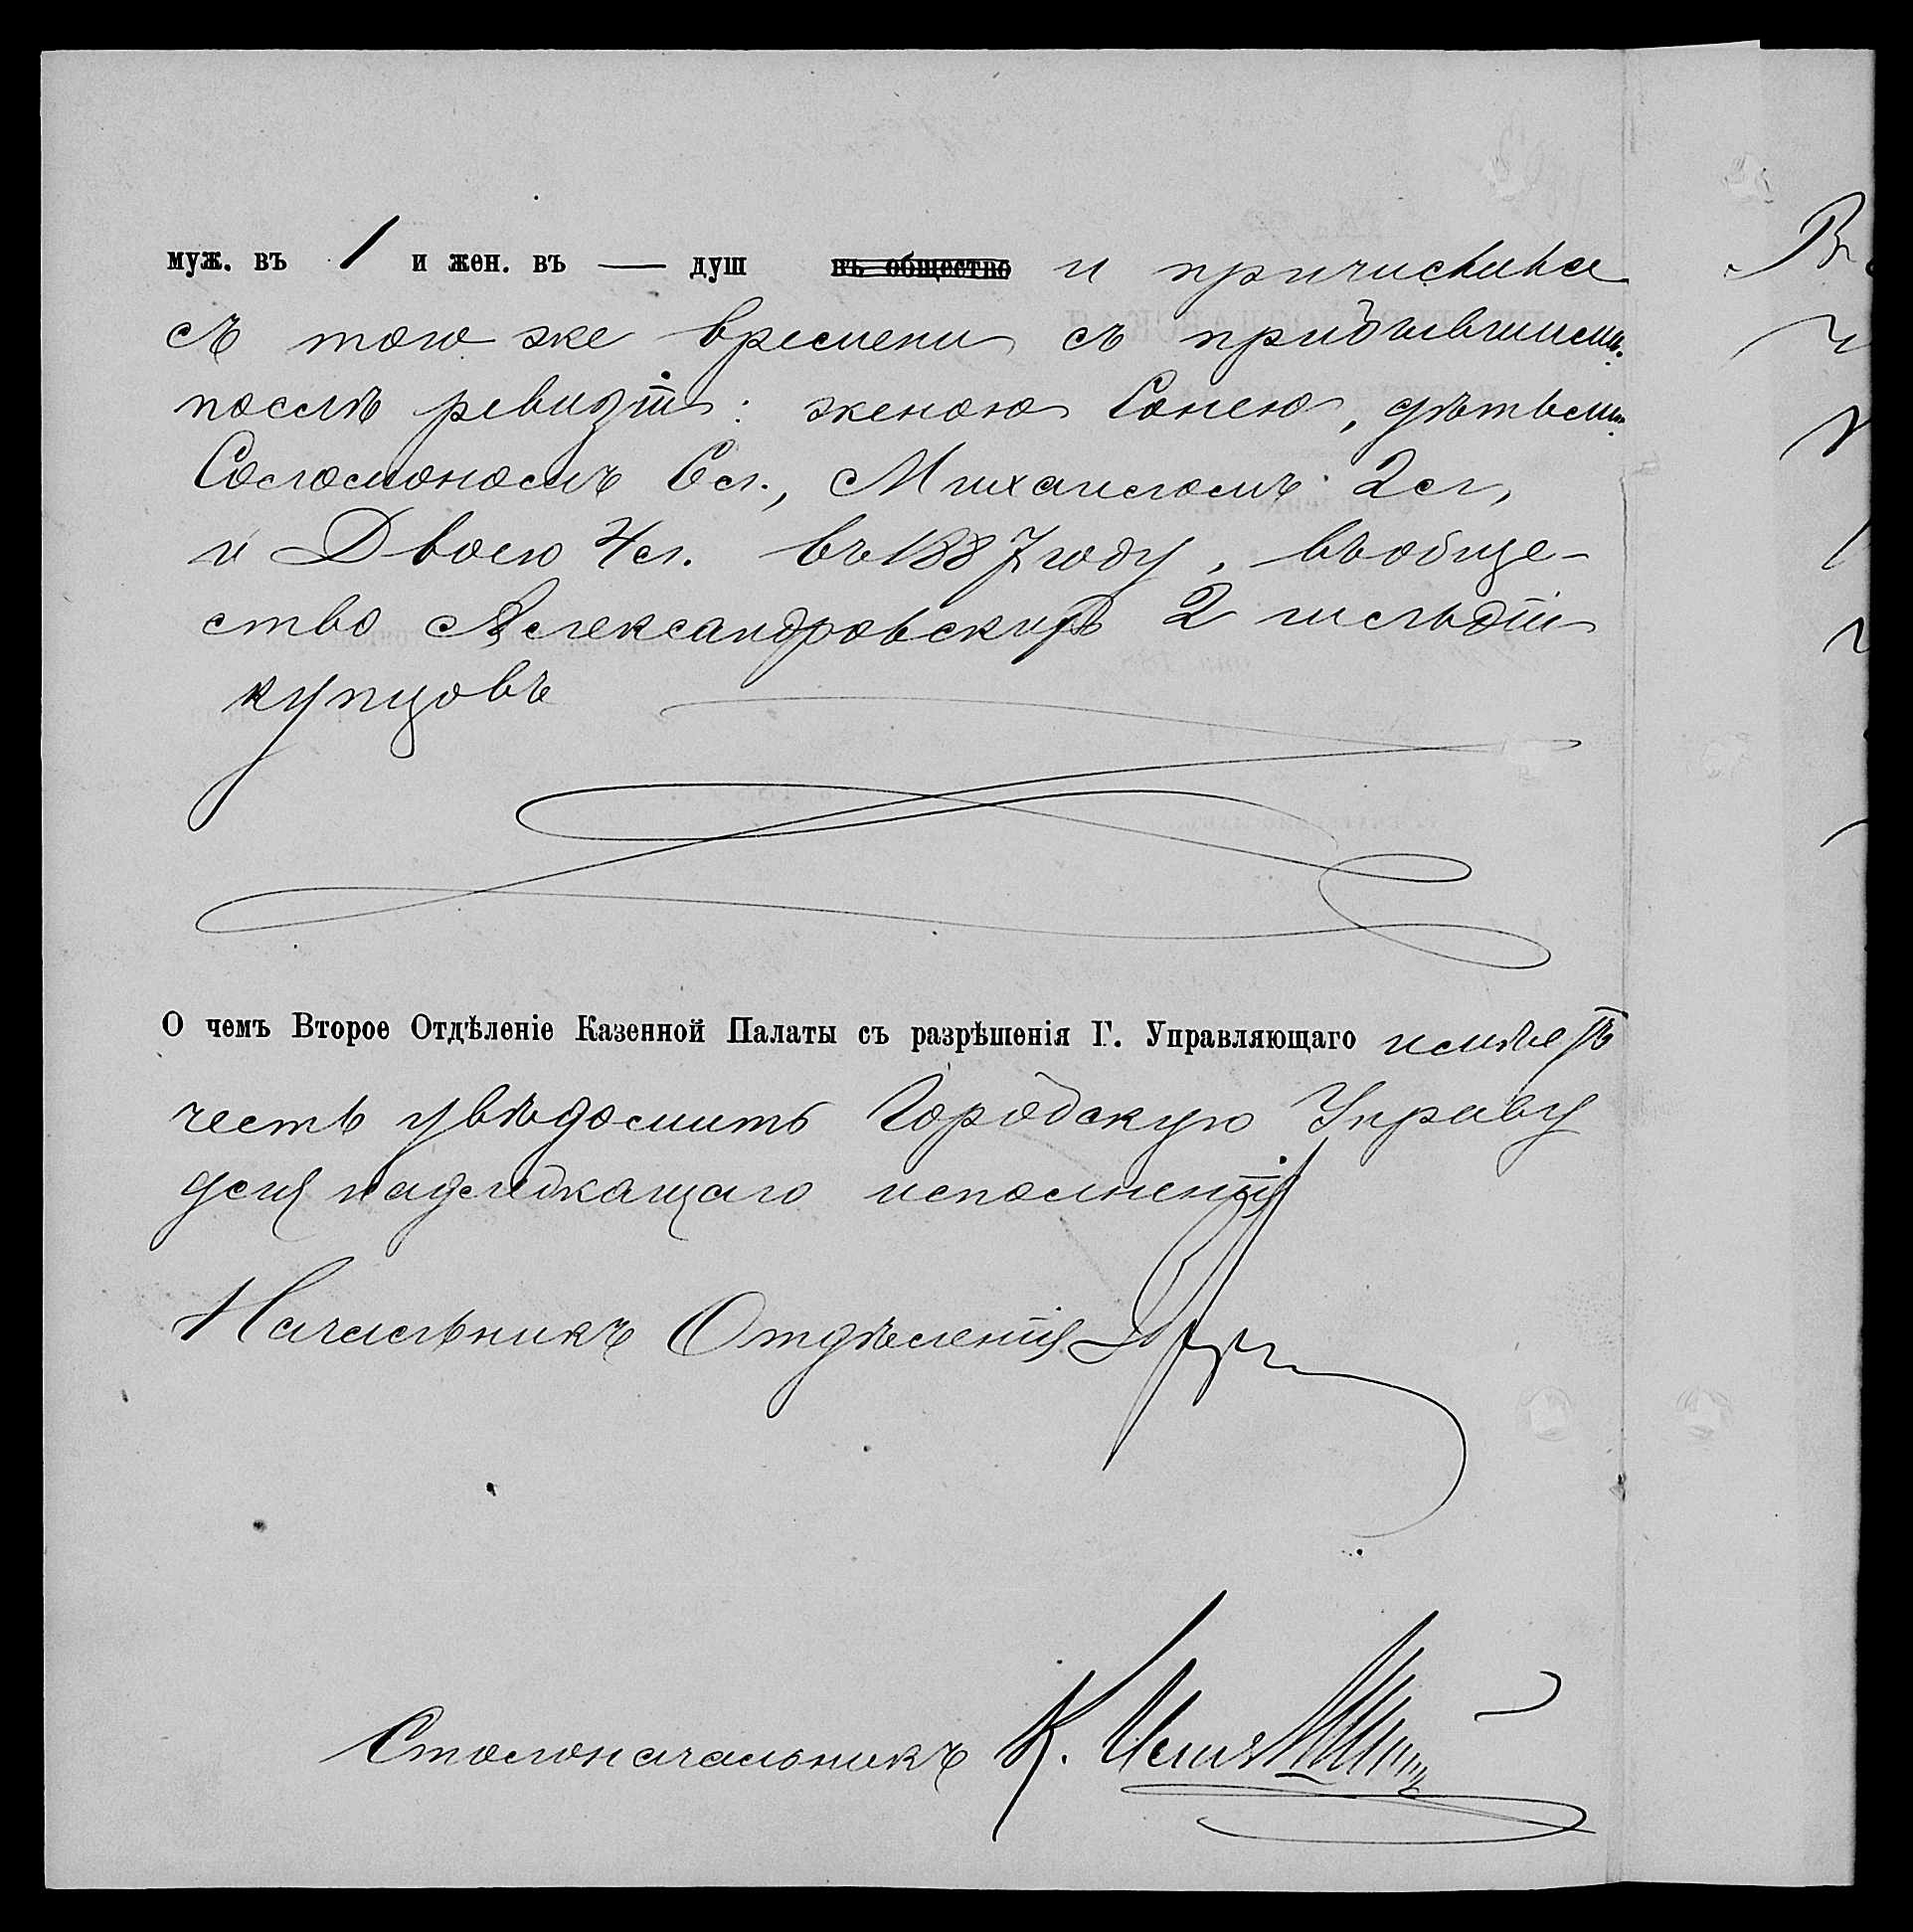 муж. въ 1 и жен. въ — душ въ общество и причислена
съ того же времени съ прибывшими
послѣ ревизіи: женою Сонею, дѣтьми
Соломономъ 6 л., Михаиломъ 2 л.,
и Двоею 4 л. въ 1887 году, въ обще-
ство Александровскихъ 2 гильдіи
купцовъ
О чемъ Второе Отдѣленіе Казенной Палаты съ разрѣшенія Г. Управляющаго имѣетъ
честь увѣдомить Городскую Управу
для надлежащаго исполненія
Начальникъ Отдѣленія
Столоначальникъ К.